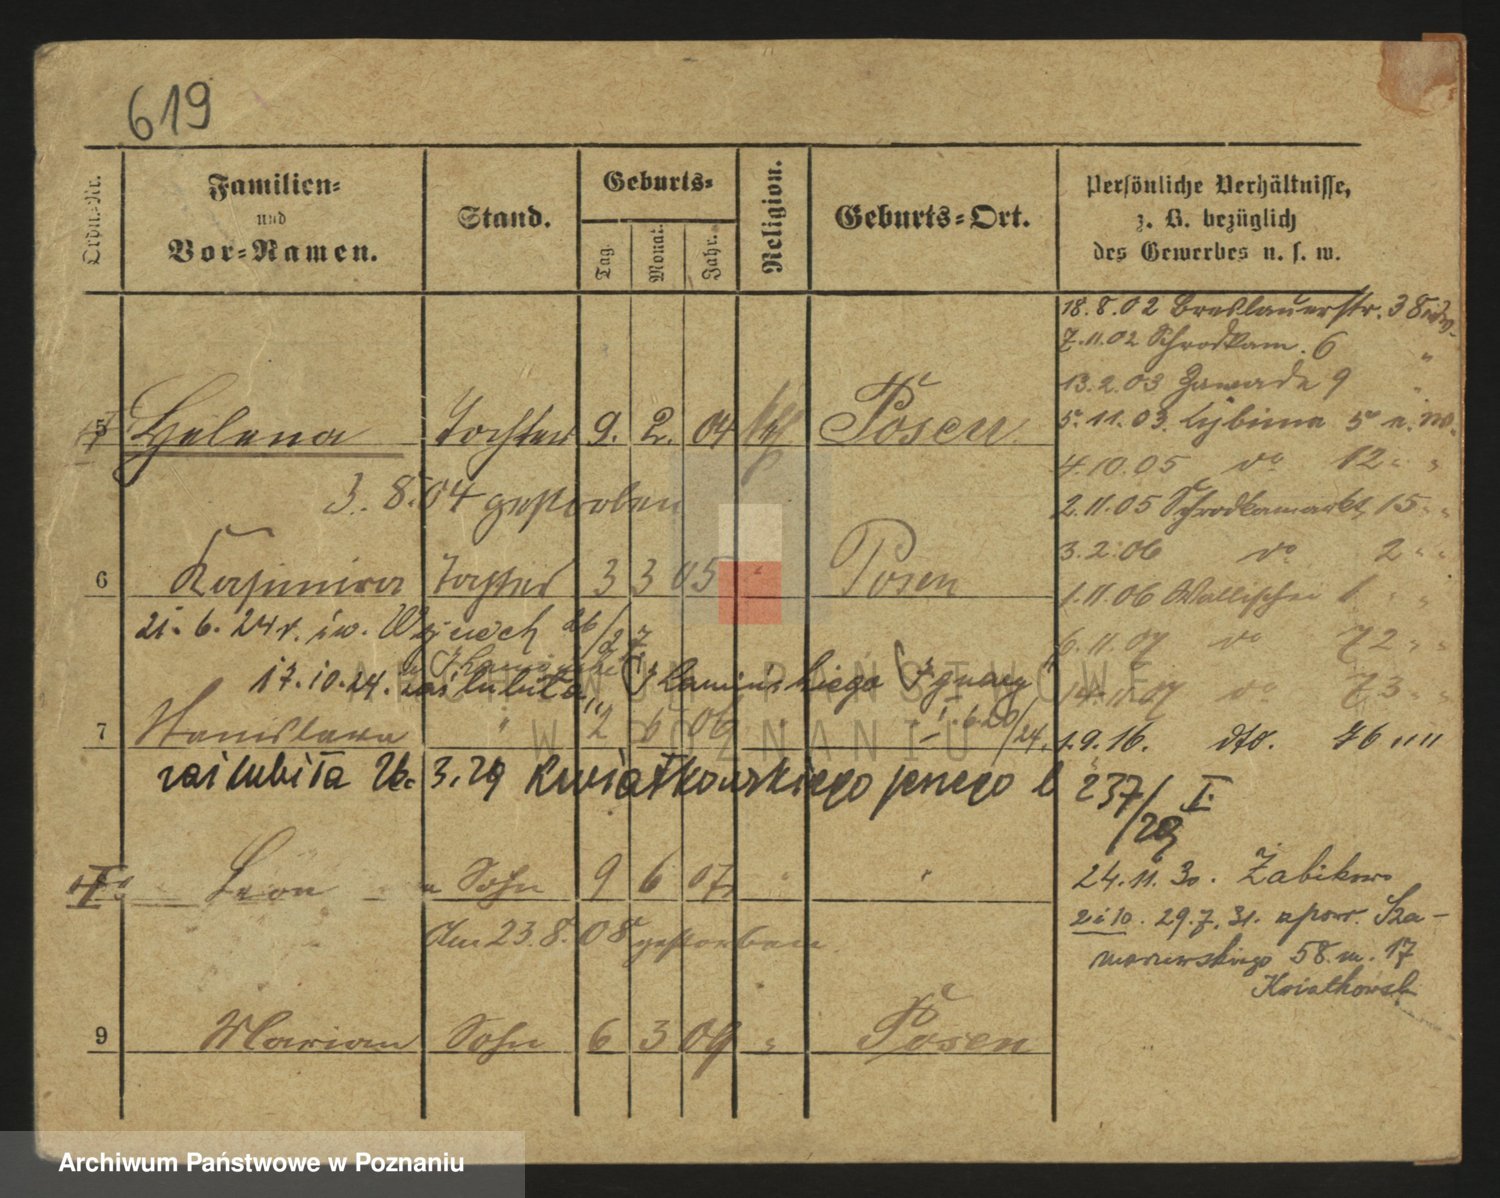 619
Ordn.-Nr.
Familien-
und
Vor-Namen.
Stand.
Geburts-
Tag.
Monat.
Jahr.
Religion.
Geburts-Ort.
Persönliche Verhältnisse,
z. B. bezüglich
des Gewerbes u. s. w.
18.8.02 Breslauerstr. 38
7.11.02 Schrodkam. 6 "
13.2.03 Zawade 9 "
5 Helena Tochter 9. 2. 04 kth Posen
5.11.03. Lybinna 5
4.10.05 do 12 " "
3.8.04 gestorben
2.11.05 Schrodkamarkt 15 " "
3.2.06 do 2 " "
6 Kasimira Tochter 3 3 05 " Posen
1.11.06 Wallischei 1 " "
21.6.24 r. i w. 26/27
6.11.07 do 72 " "
17.10.24. zaślubiła Kamińskiego Ignacy
14.11.07 do 73 " "
7 Stanislava " 2 6 06
1.6.20/24.
1.9.16. dto. 76 " "
zaślubiła 26. 3.29 Kwiatkowskiego
237/29 I.
Leon Sohn 9 6 07 " "
24.11.30. Żabikowo
29.7.31. z pow. Sza-
marzewskiego 58 m. 17
Am 23.8.08 gestorben
Kwiatkowsk
9 Marian Sohn 6 3 09 " Posen
ARCHIWUM PAŃSTWOWE
W POZNANIU
Archiwum Państwowe w Poznaniu